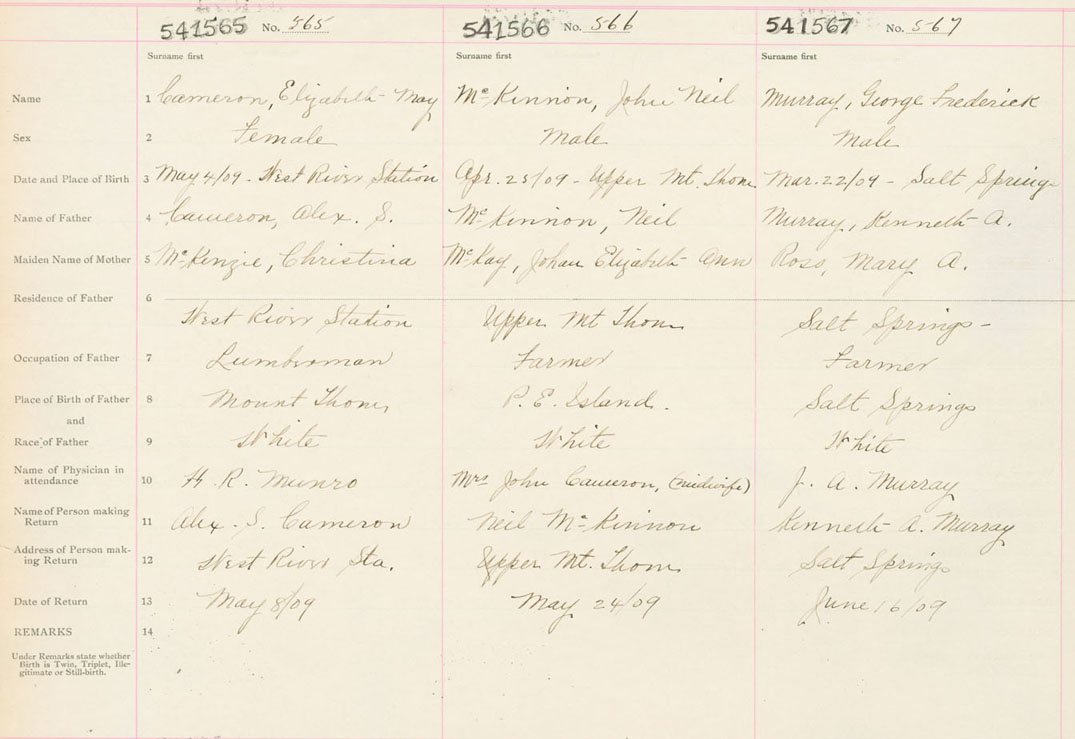 541565 No. 565 541566 No. 566 541567 No. 567
Surname first Surname first Surname first
Name 1 Cameron, Elizabeth May McKinnon, John Neil Murray, George Frederick
Sex 2 Female Male Male
Date and Place of Birth 3 May 4/09 - West River Station Apr. 25/09 - Upper Mt. Thom Mar. 22/09 - Salt Springs
Name of Father 4 Cameron, Alex. S. McKinnon, Neil Murray, Kenneth A.
Maiden Name of Mother 5 McKenzie, Christina McKay, Johan Elizabeth Ann Ross, Mary A.
Residence of Father 6
West River Station Upper Mt Thom Salt Springs -
Occupation of Father 7 Lumberman Farmer Farmer
Place of Birth of Father 8 Mount Thom P. E. Island. Salt Springs
and
Race of Father 9 White White White
Name of Physician in
attendance 10 H. R. Munro Mrs John Cameron, (midwife) J. A. Murray
Name of Person making
Return 11 Alex. S. Cameron Neil McKinnon Kenneth A. Murray
Address of Person mak-
ing Return 12 West River Sta. Upper Mt. Thom Salt Springs
Date of Return 13 May 8/09 May 24/09 June 16/09
REMARKS 14
Under Remarks state whether
Birth is Twin, Triplet, Ille-
gitimate or Still-birth.